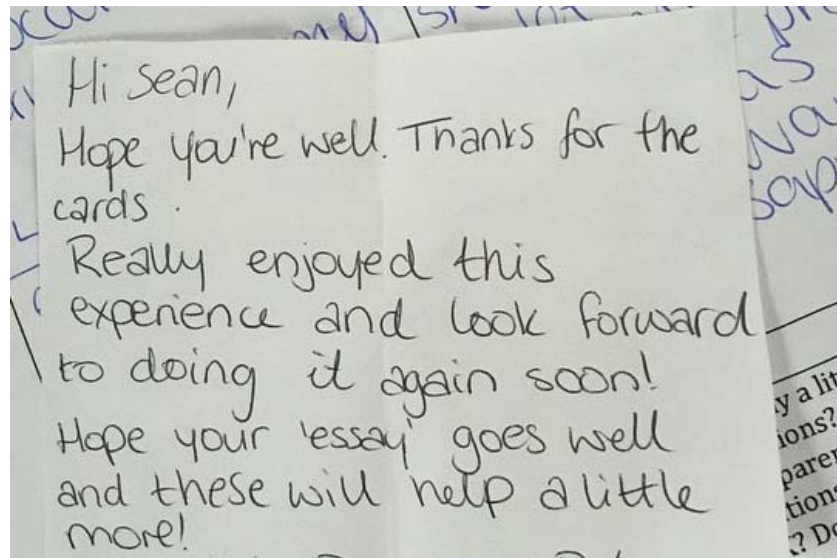 Hi Sean,
Hope you're well. Thanks for the
cards.
Really enjoyed this
experience and look forward
to doing it again soon!
Hope your 'essay' goes well
and these will help a little
more!
y a lit
ions?
paren
tions
? Do